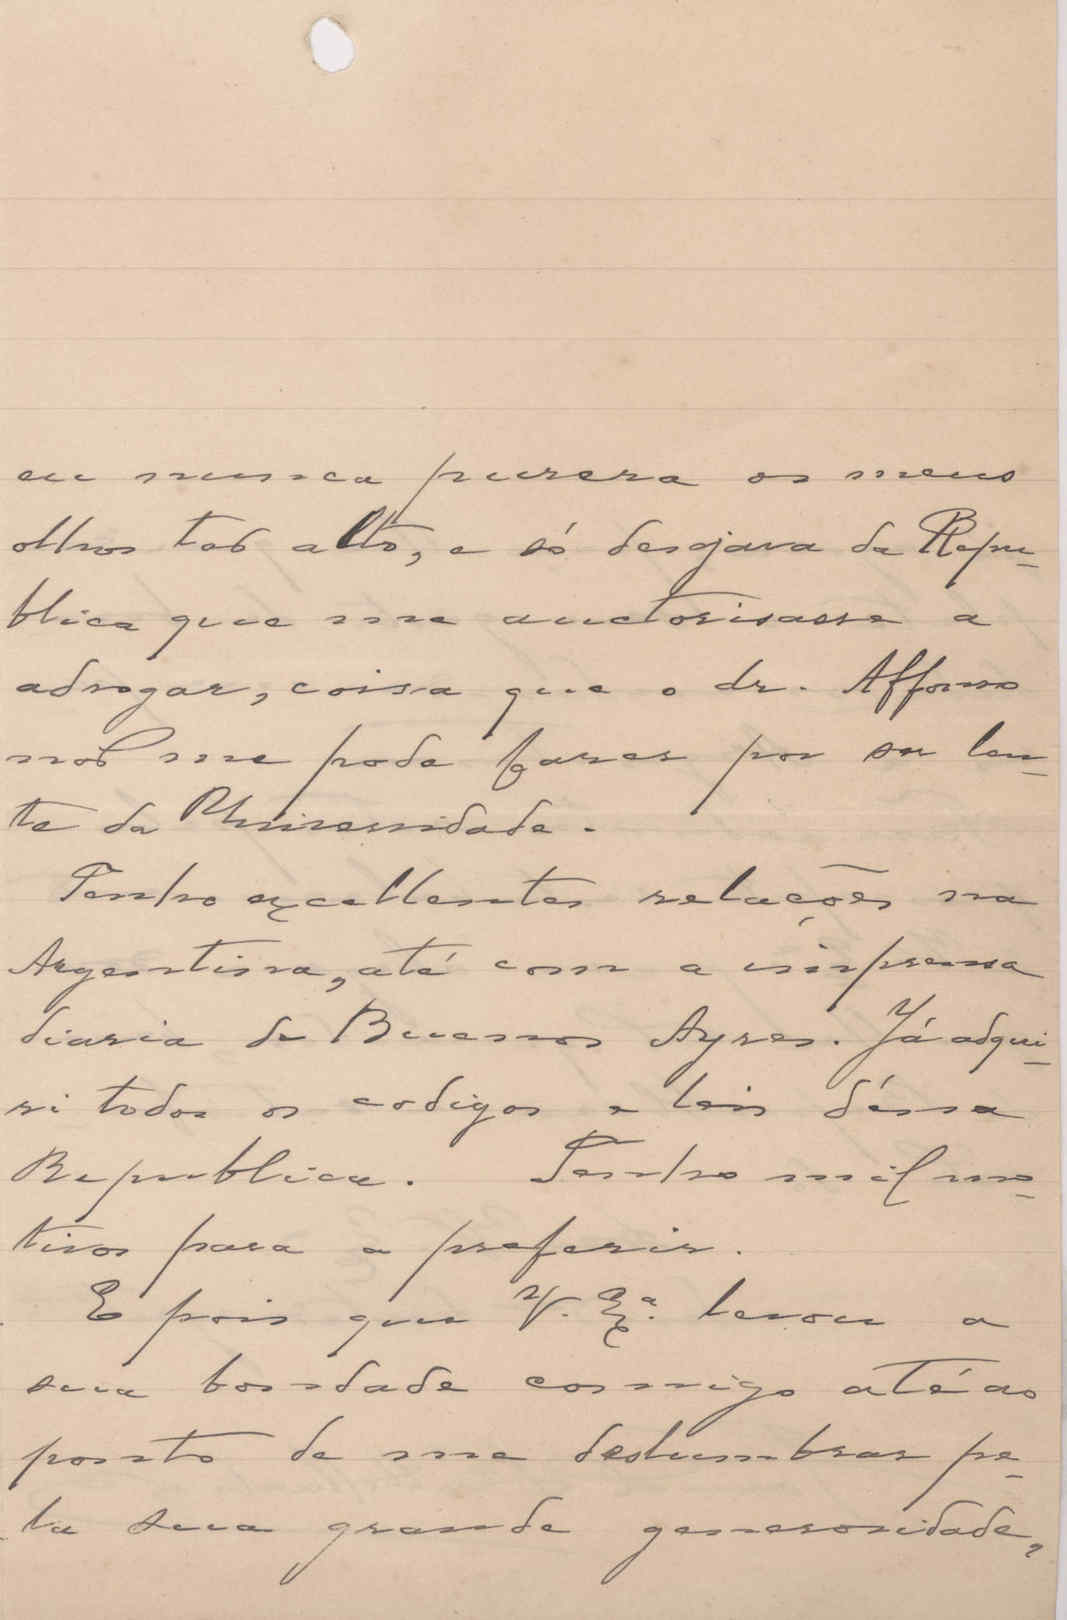 eu nunca puzera os meus
olhos tão alto, e só desejava da Repu-
blica que me auctorisasse a
advogar, coisa que o dr. Affonso
não me pode fazer por ser len-
te da Universidade.
Tenho excellentes relações na
Argentina, até com a imprensa
diaria de Buenos Ayres. Já adqui-
ri todos os codigos e leis déssa
Republica. Tenho mil mo-
tivos para a preferir.
E pois que V. Exª. levou a
sua bondade comigo até ao
ponto de me deslumbrar pe-
la sua grande generosidade,